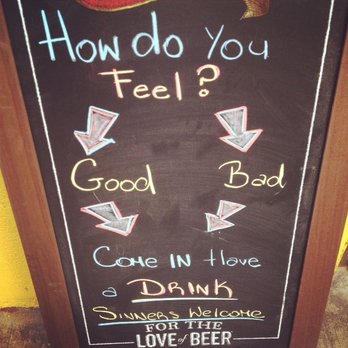 How do You
Feel?
Good Bad
Come IN Have
a DRINK
SINNERS WELCOME
FOR THE
LOVE of BEER